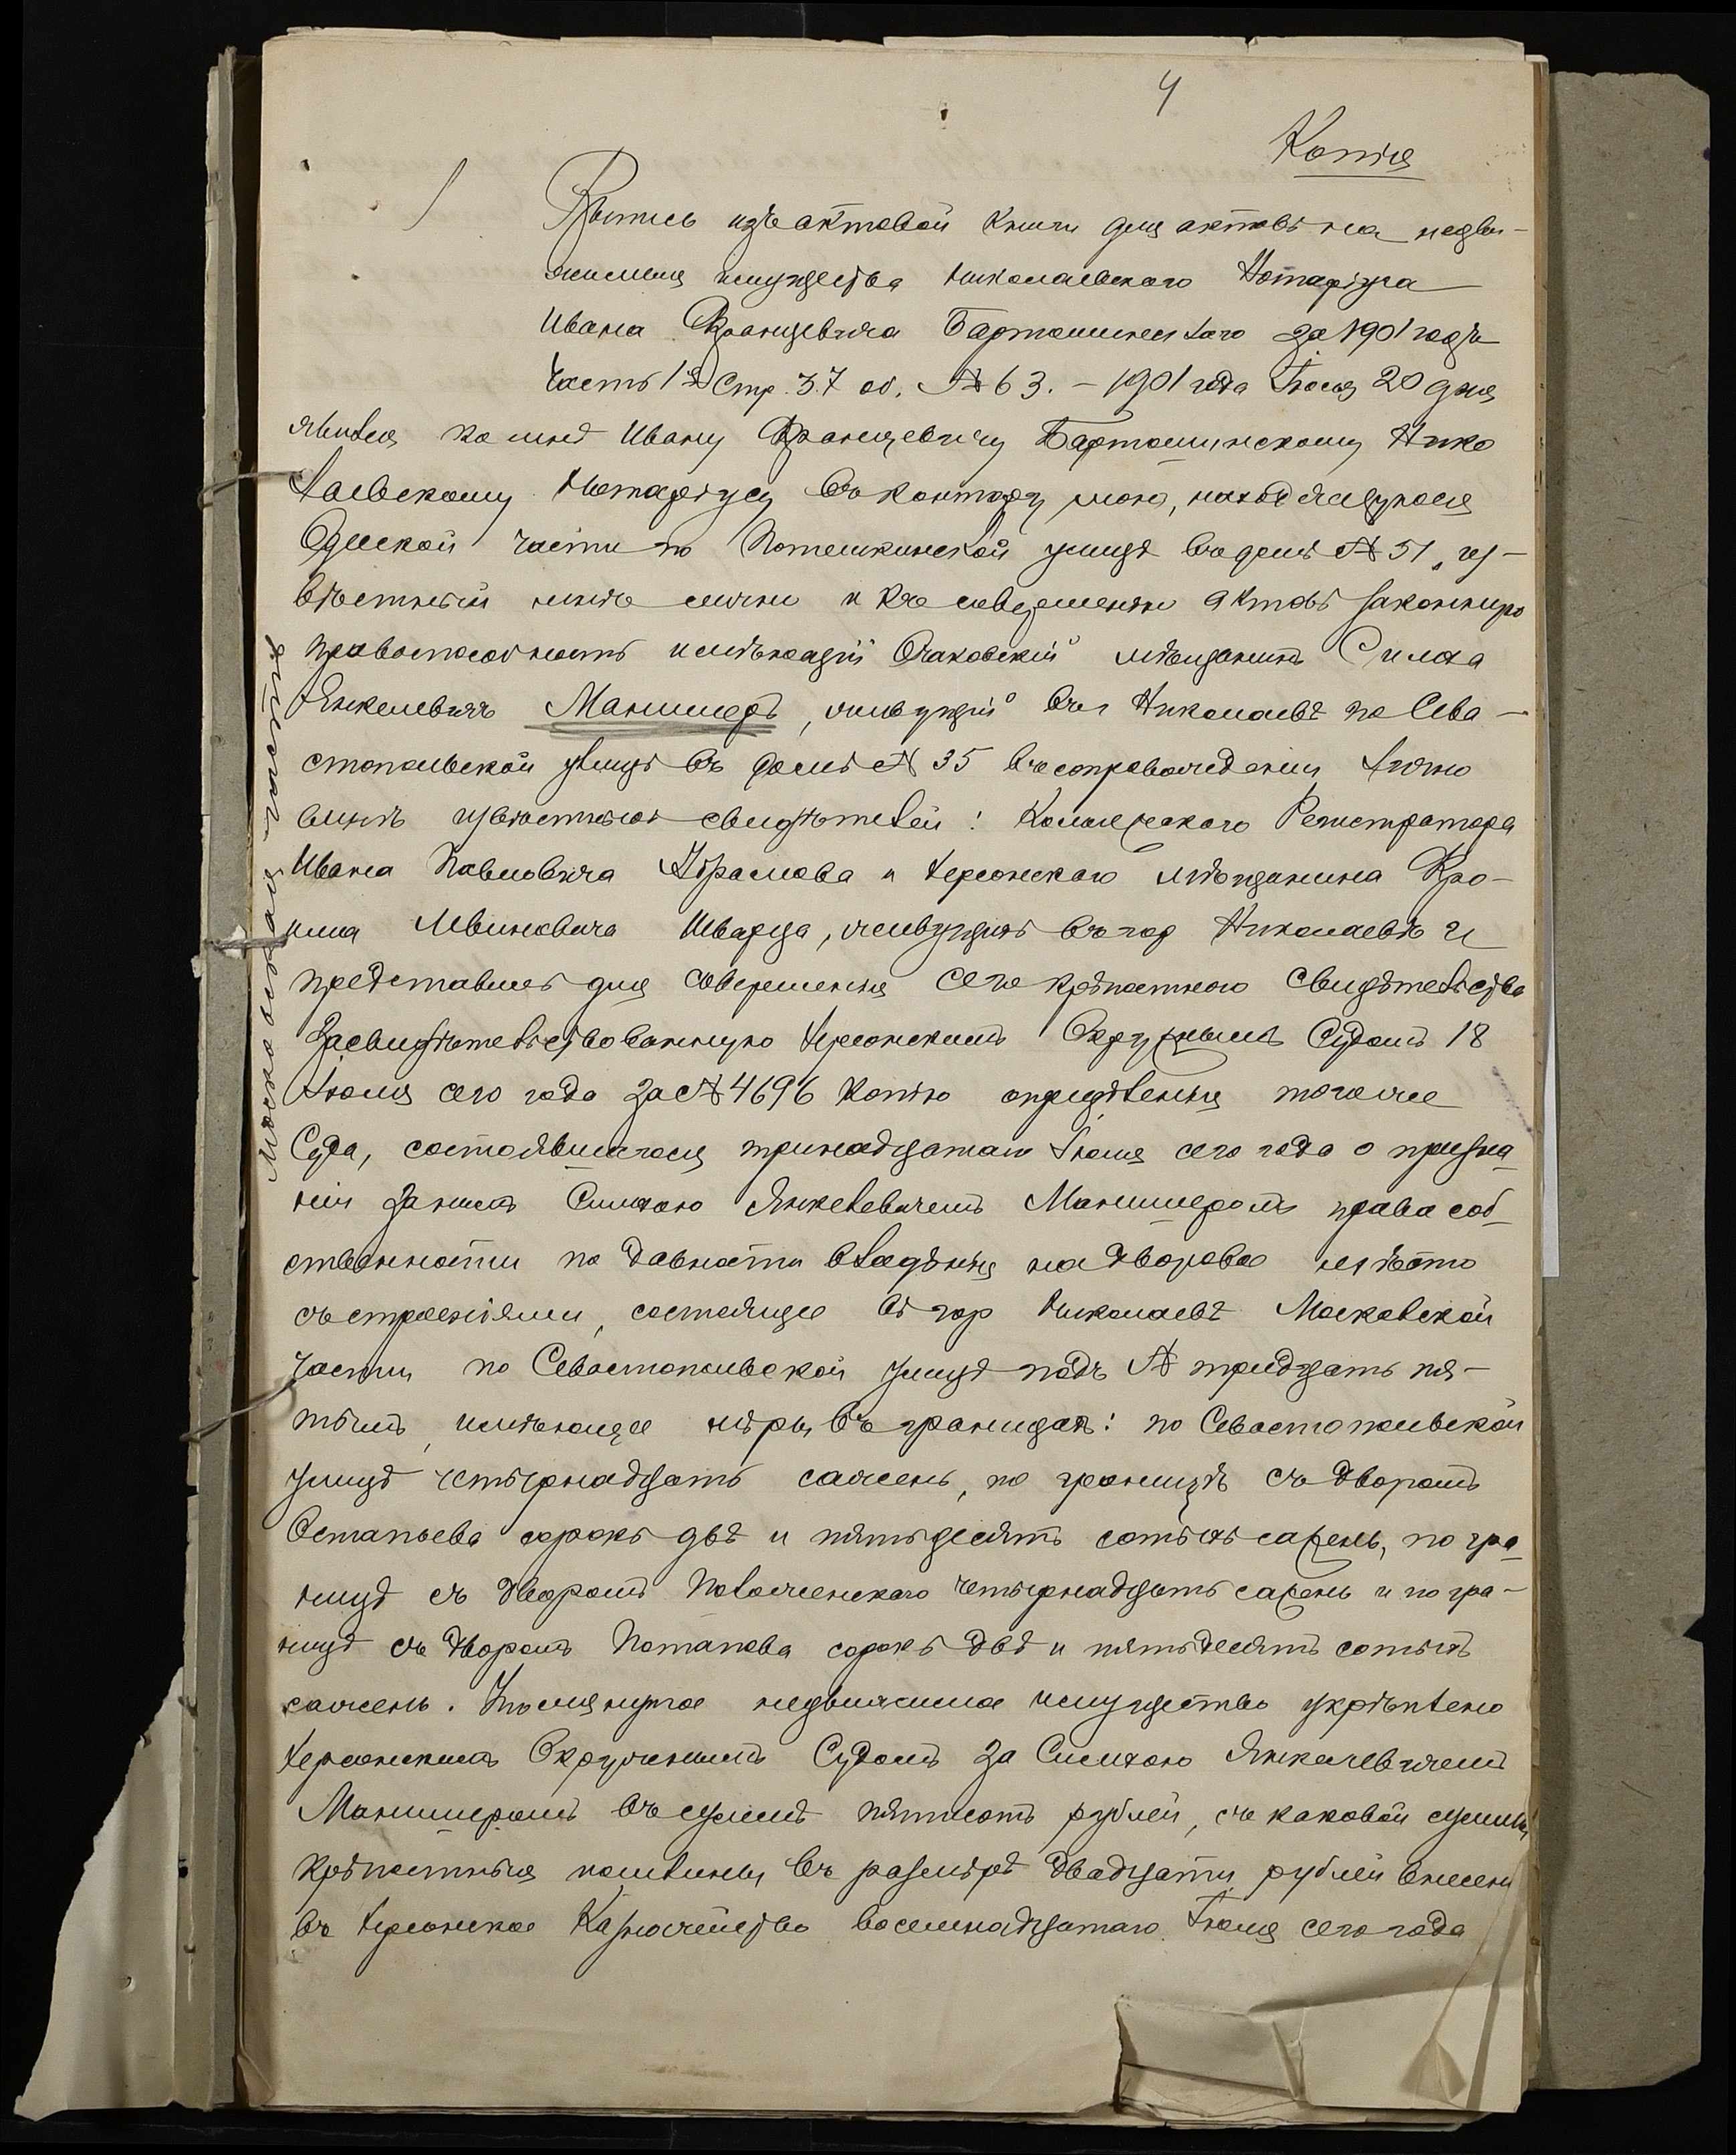 4
Копія
Выпись изъ актовой книги для актовъ на недви-
жимыя имущества Николаевскаго Нотаріуса
Ивана Францевича Бартошинскаго за 1901 годъ
Часть 1я Стр. 37 об. № 63. – 1901 года Іюля 20 дня
явился ко мнѣ Ивану Францевичу Бартошинскому Нико
лаевскому Нотаріусу въ контору мою, находящуюся
Одесской части по Потемкинской улицѣ въ домѣ № 51, из-
вѣстный мнѣ лично и къ совершенію актовъ законную
правоспособность имѣющій Очаковскій мѣщанинъ Симха
Янкелевичъ Маншперъ, живущій въ г Николаевѣ по Сева-
стопольской улицѣ въ домѣ № 35 въ сопровожденіи лично
мнѣ извѣстныхъ свидѣтелей: Коллежскаго Регистратора
Ивана Павловича Абрамова и Херсонскаго мѣщанина Фро-
има Лейновича Шварца, живущихъ въ гор Николаевѣ и
представилъ для совершенія сего крѣпостного свидѣтельства
Засвидѣтельствованную Херсонскимъ Окружнымъ Судомъ 18
Іюля сего года за № 4696 копію опредѣленія того же
Суда, состоявшагося тринадцатаго Іюля сего года о призна-
ніи за нимъ Симхою Янкелевичемъ Маншперомъ права соб-
ственности по давности владѣнія на дворовое мѣсто
съ строеніями, состоящее въ гор Николаевѣ Московской
части по Севастопольской улицѣ подъ № тридцать пя-
тымъ, имѣющее мѣры въ границахъ: по Севастопольской
улицѣ четырнадцать сажень, по границѣ съ дворомъ
Остапьева сорокъ двѣ и пятьдесятъ сотыхъ сажень, по гра-
ницѣ съ дворомъ Поволженскаго четырнадцать сажень и по гра-
ницѣ съ дворомъ Потапова сорокъ двѣ и пятьдесятъ сотыхъ
сажень. Упомянутое недвижимое имущество укрѣплено
Херсонскимъ Окружнымъ Судомъ за Симхою Янкелевичемъ
Маншперомъ въ суммѣ пятисотъ рублей, съ каковой суммы
крѣпостныя пошлины въ размѣрѣ двадцати рублей внесены
въ Херсонское Казначейство восемнадцатаго Іюля сего года
Московская часть